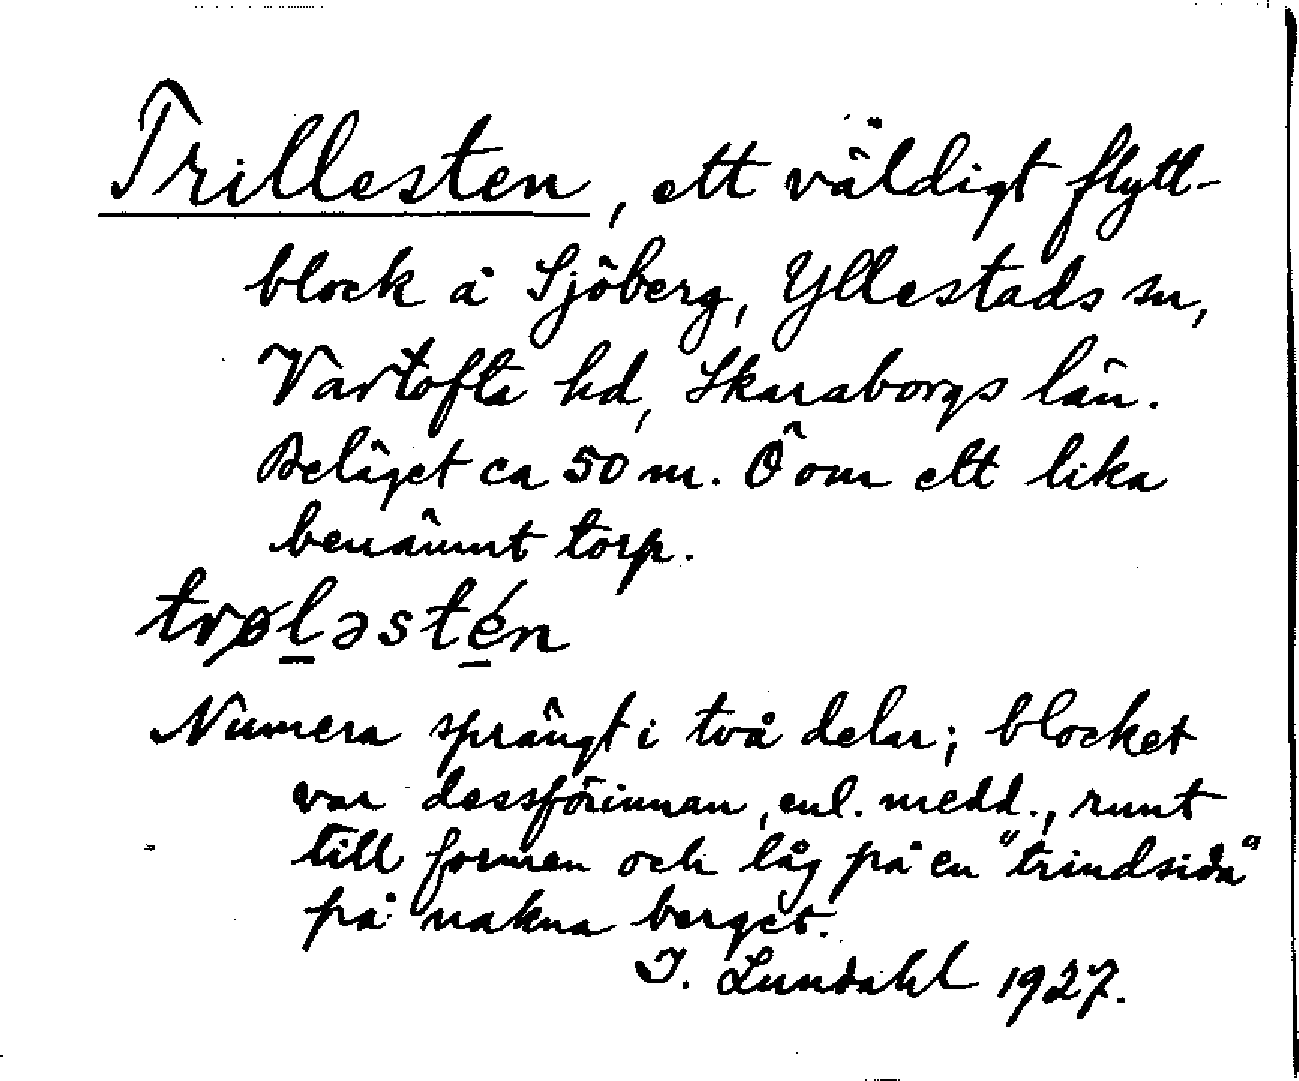 Trillesten, ett väldigt flytt-
block å Sjöberg, Yllestads sn,
Vartofta hd, Skaraborgs län.
Beläget ca 50 m. Ö om ett lika
benämnt torp.
trø̵ləstén
Numera sprängt i två delar; blocket
var dessförinnan, enl. medd., runt
till formen och låg på en "trindsida"
på nakna berget.
I. Lundahl 1927.